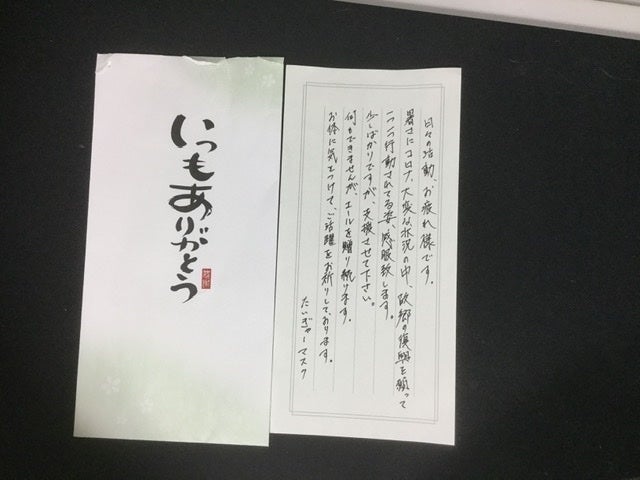 いつもありがとう
日々の活動、お疲れ様です。
暑さにコロナ、大変な状況の中、故郷の復興を願って
一つ一つ行動されてる姿、感服致します。
少しばかりですが、支援させて下さい。
何もできませんが、エールを贈り続けます。
お体に気をつけて、ご活躍をお祈りしております。
たいぎゃーマスク